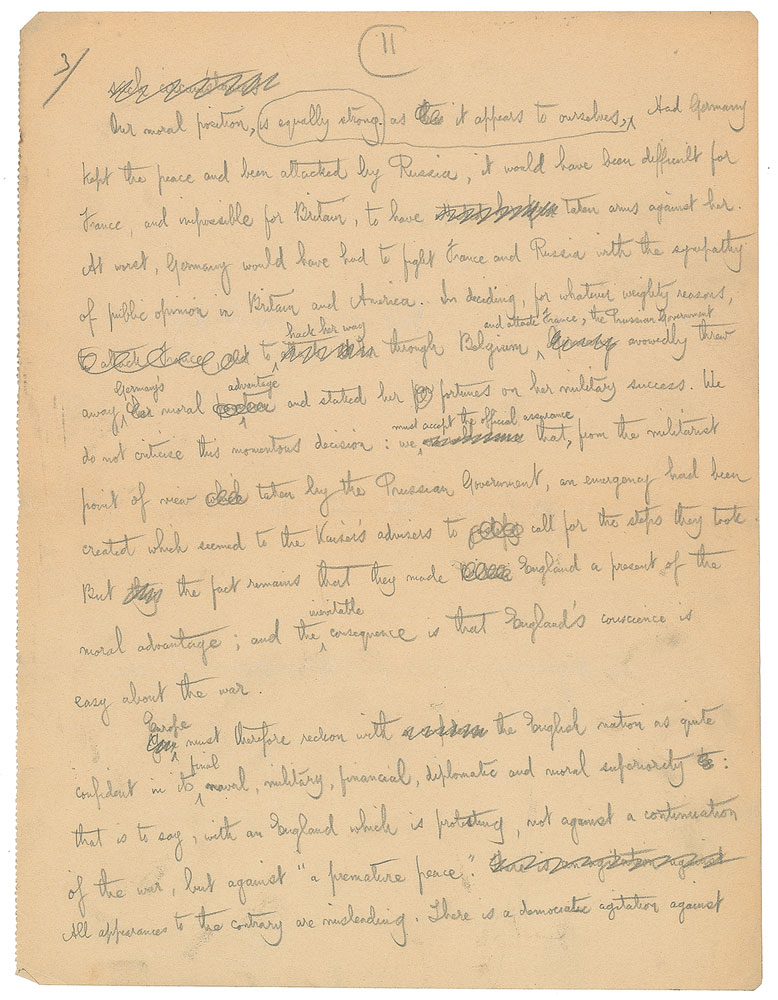 11
3/
Our moral position, is equally strong. as it appears to ourselves, Had Germany
kept the peace and been attacked by Russia, it would have been difficult for
France, and impossible for Britain, to have taken arms against her.
At worst, Germany would have had to fight France and Russia with the sympathy
of public opinion in Britain and America. In deciding, for whatever weighty reasons,
hack her way and attack France, the Prussian Government
to attack France, and to through Belgium, avowedly threw
Germany's advantage
away her moral and staked her fortunes on her military success. We
must accept the official assurance
do not criticise this momentous decision : we that, from the militarist
point of view which taken by the Prussian Government, an emergency had been
created which seemed to the Kaiser's advisers to justify call for the steps they took.
But the fact remains that they made England a present of the
inevitable
moral advantage ; and the consequence is that England's conscience is
easy about the war.
Europe
must therefore reckon with the English nation as quite
final
confident in its naval, military, financial, diplomatic and moral superiority :
that is to say, with an England which is protesting, not against a continuation
of the war, but against "a premature peace". There is an agitation against
All appearances to the contrary are misleading. There is a democratic agitation against